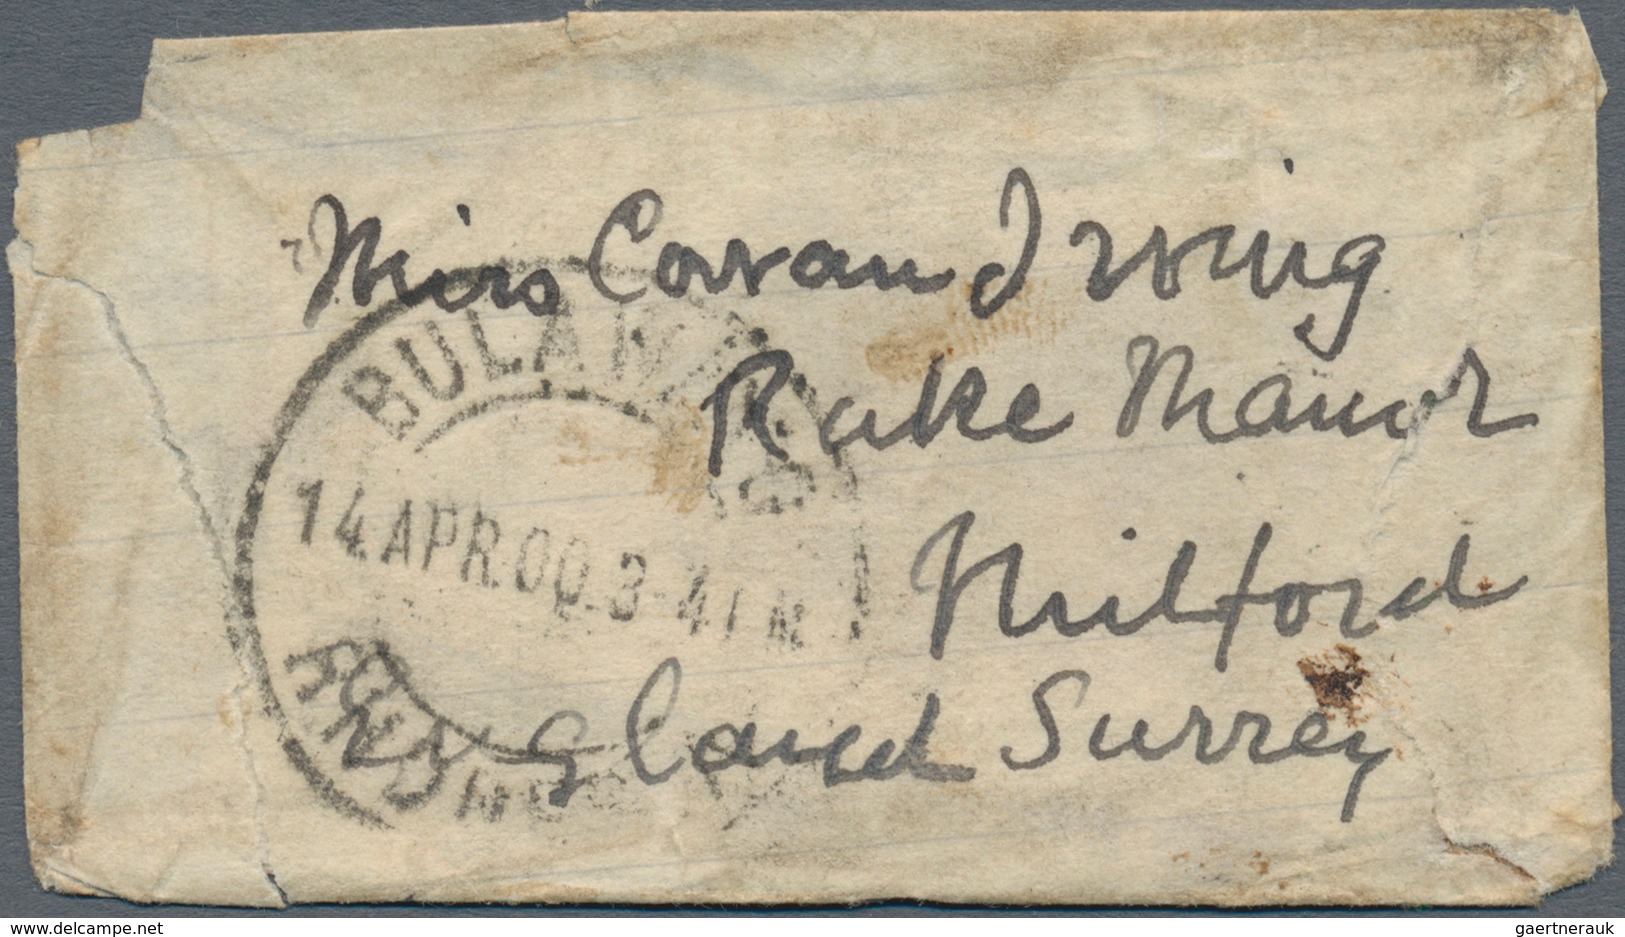 Miss Cowan Irving
Rake Manor
Milford
England Surrey
BULAWAYO
14.APR.00.3-41 M
RHODESIA
delcampe.net
gaertnerauk